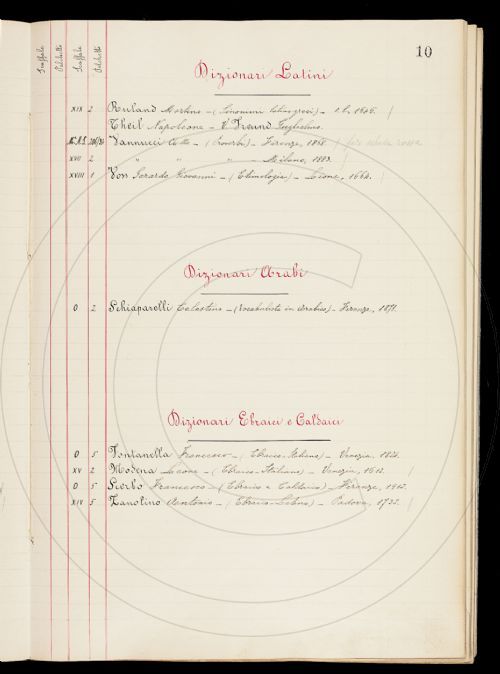 10
Scaffale Palchetti Scaffale Palchetti
Dizionari Latini
XIX 2 Ruland Martino - (Sinonimi latino greci) -
Theil Napoleone - V. Freund Guglielmo.
Vannucci Atto - (Proverbi) - Firenze, 18 schede rosse
XVII 2 " " " - Milano, 1883.
XVIII 1 Von Gerardo Giovanni - (Etimologia) - Lione, 1664.
Dizionari Arabi
O 2 Schiaparelli Celestino - (Vocabulista in Arabico) - Firenze, 1871.
Dizionari Ebraici e Caldaici
O 5 Fontanella Francesco - (Ebraico-Italiano) - Venezia, 1824.
XV 2 Modena Leone - (Ebraico-Italiano) - Venezia, 1612.
O 5 Scerbo Francesco - (Ebraico e Caldaico) - Firenze, 1912.
XIV 5 Zanolino Antonio - (Ebraico-Latino) - Padova, 1732.